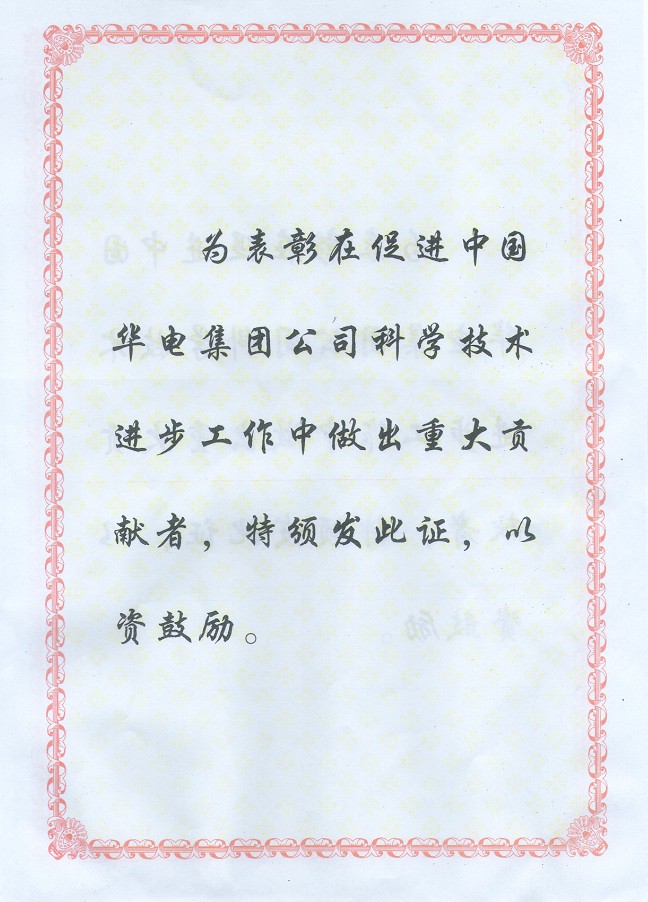 为表彰在促进中国
华电集团公司科学技术
进步工作中做出重大贡
献者，特颁发此证，以
资鼓励。